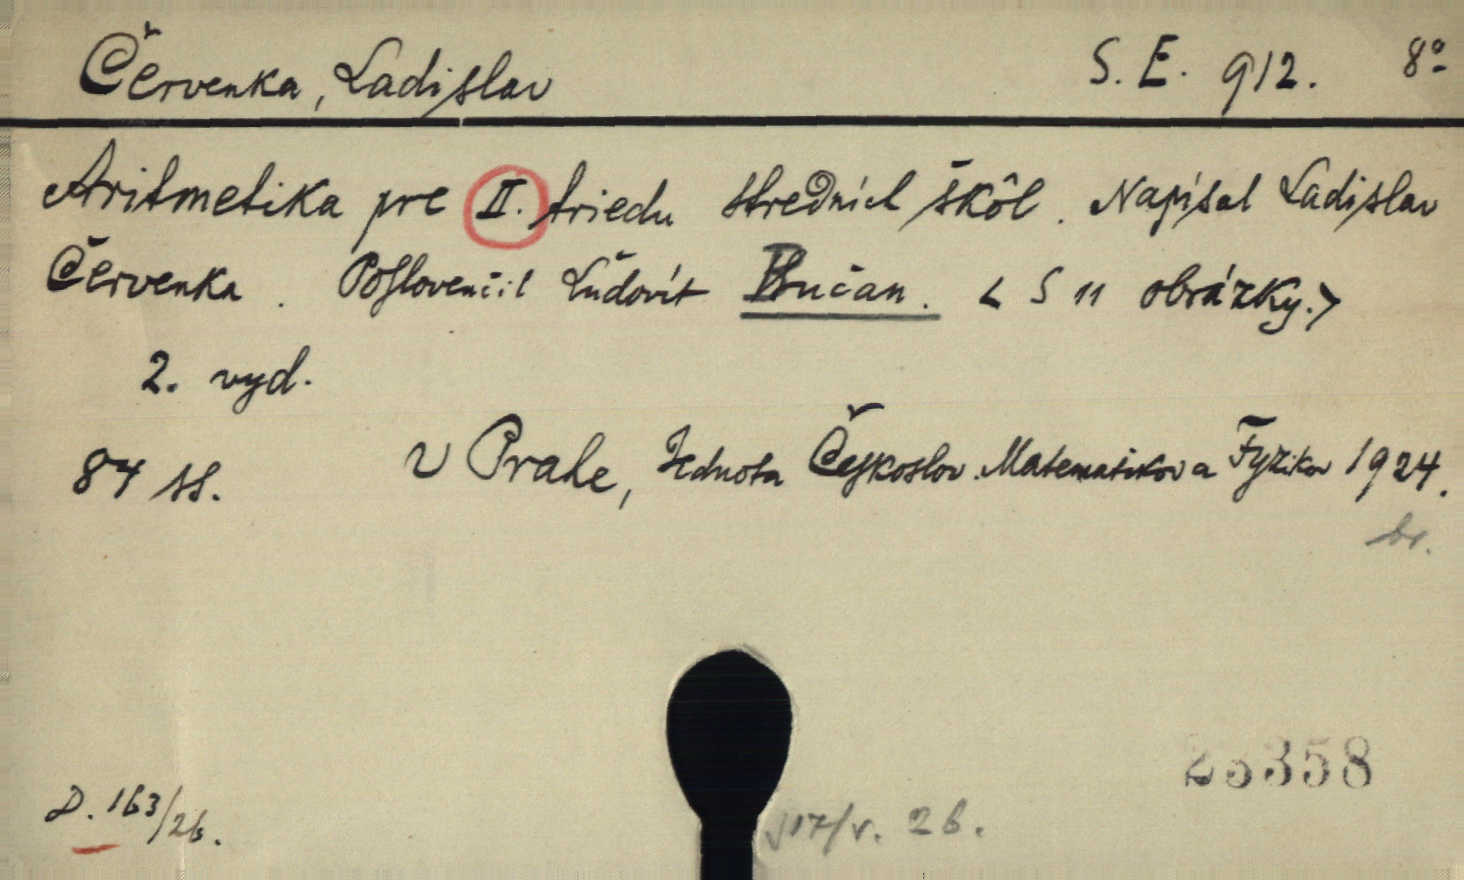 Červenka, Ladislav S. E. 912. 8°
Aritmetika pre II. triedu stredních škôl. Napísal Ladislav
Červenka. Poslovenčil Ľudovít Bučan. < S 11 obrázky.>
2. vyd.
84 ss. V Prahe, Jednota Českoslov. Matematikov a Fyzikov 1924.
br.
25358
D. 163/26.
17/v. 26.